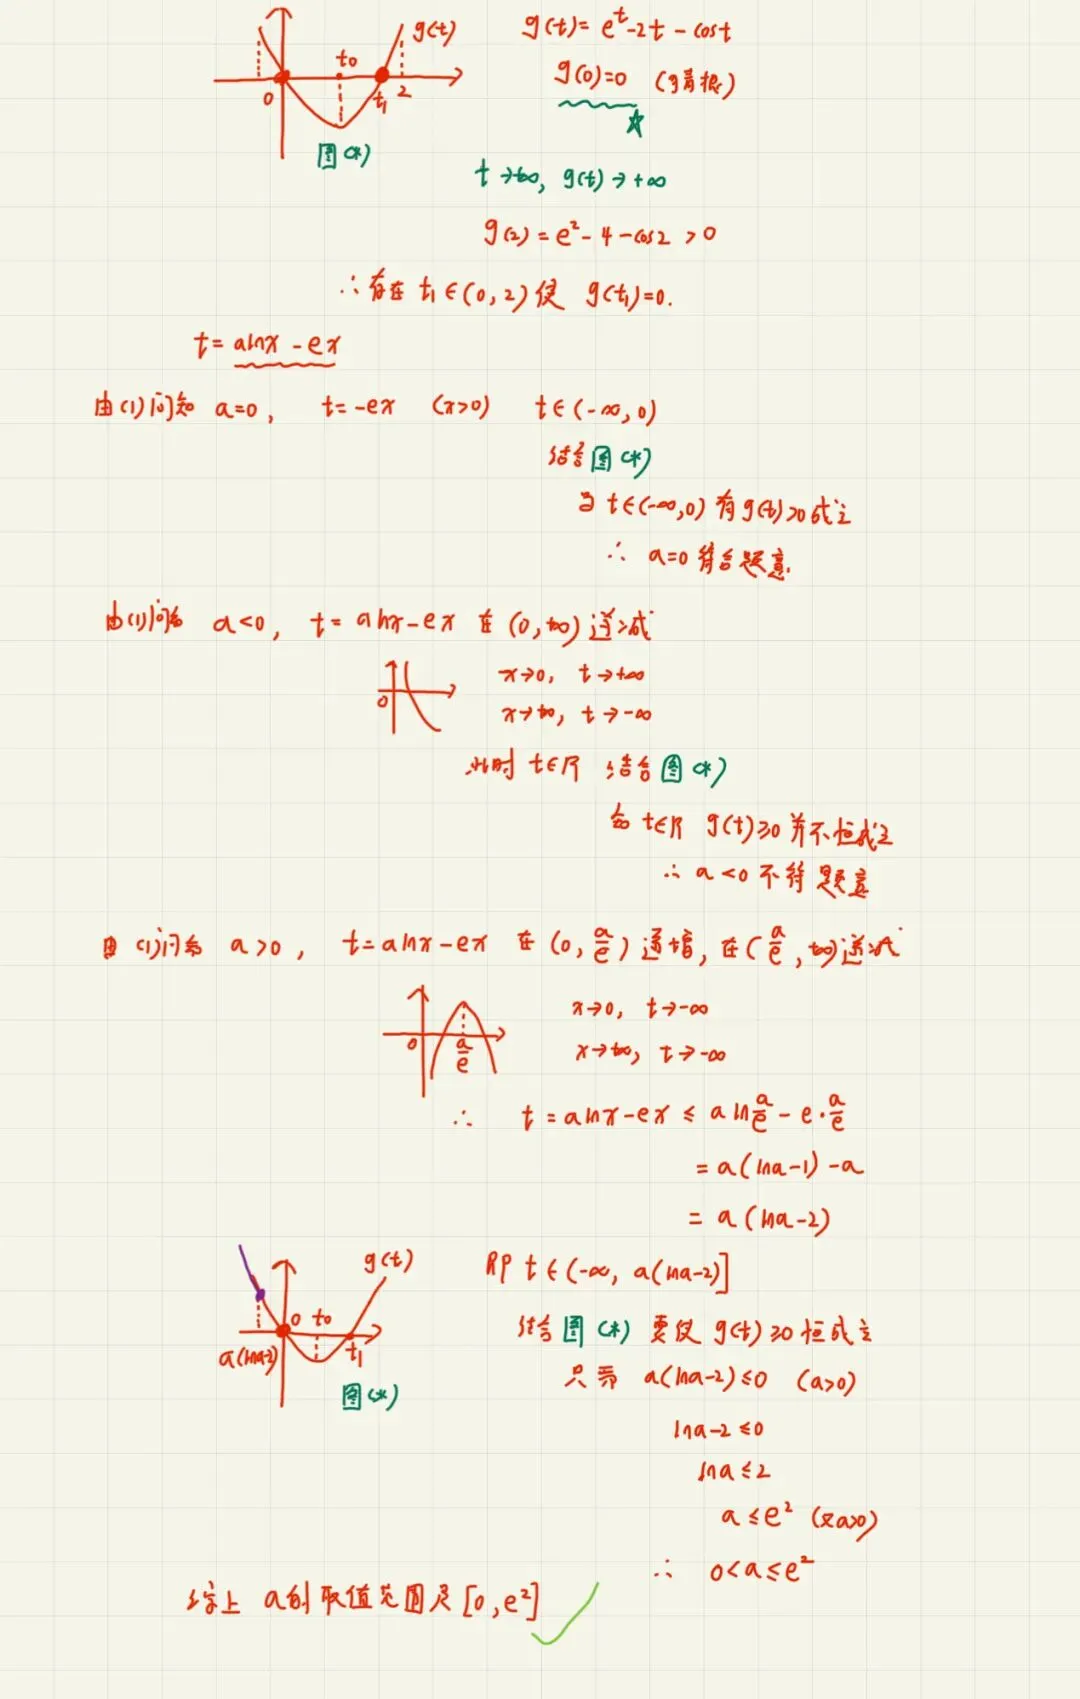 g(t)
t₀
0
t₁
2
图(*)
g(t)=eᵗ-2t-cost
g(0)=0 (猜根)
t→+∞, g(t)→+∞
g(2)=e²-4-cos2>0
∴存在t₁∈(0,2)使 g(t₁)=0.
t=alnx-ex
由(1)问知 a=0, t=-ex (x>0) t∈(-∞,0)
结合图(*)
当t∈(-∞,0)有g(t)>0成立
∴ a=0符合题意.
由(1)问知 a<0, t=alnx-ex在(0,+∞)递减
0
x→0, t→+∞
x→+∞, t→-∞
此时t∈R 结合图(*)
知t∈R g(t)≥0并不恒成立
∴a<0不符题意
由(1)问知 a>0, t=alnx-ex 在(0,a/e)递增,在(a/e,+∞)递减
0
a/e
x→0, t→-∞
x→+∞, t→-∞
∴ t=alnx-ex≤aln a/e-e·a/e
=a(lna-1)-a
=a(lna-2)
g(t)
0
t₀
a(lna-2)
t₁
图(*)
即t∈(-∞, a(lna-2)]
结合图(*)要使g(t)≥0恒成立
只需 a(lna-2)≤0 (a>0)
lna-2≤0
lna≤2
a≤e² (又a>0)
∴ 0<a≤e²
综上 a的取值范围是[0,e²]